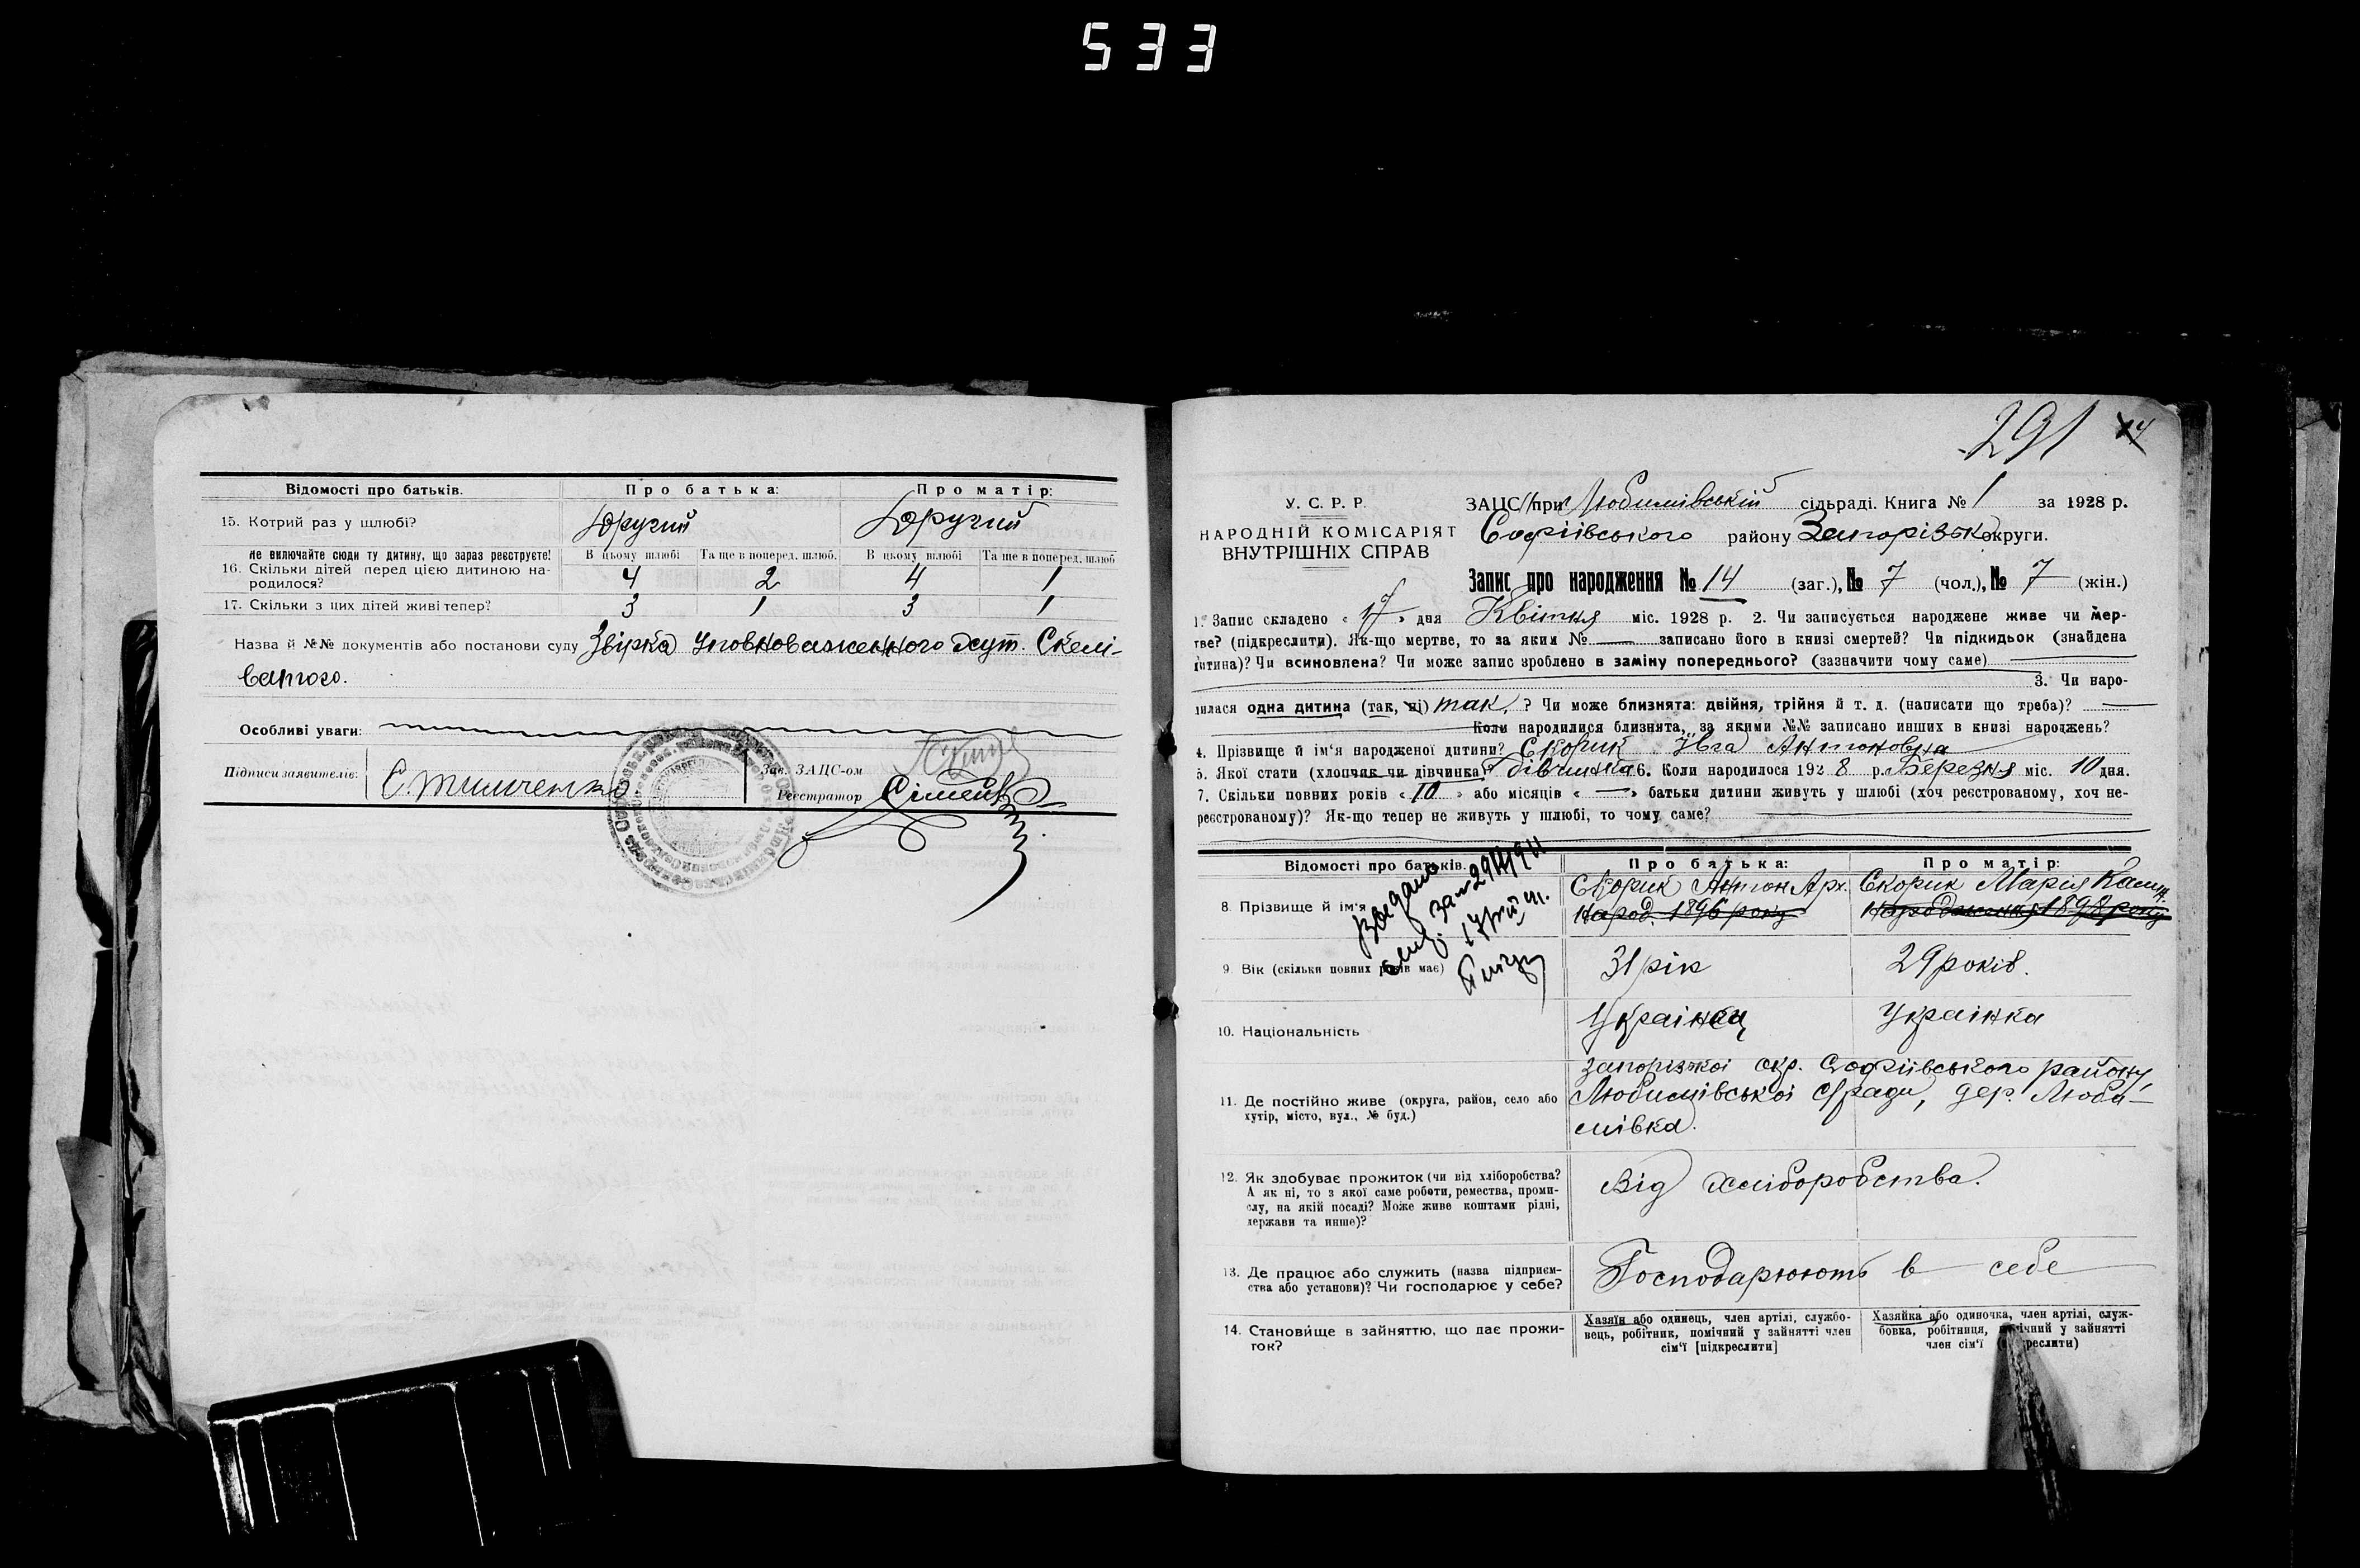 533
Відомості про батьків. Про батька: Про матір:
15. Котрий раз у шлюбі? Другий Другий
Не включайте сюди ту дитину, що зараз реєструєте! В цьому шлюбі Та ще в поперед. шлюб. В цьому шлюбі Та ще в поперед. шлюб
16. Скільки дітей перед цією дитиною на-
родилося? 4 2 4 1
17. Скільки з цих дітей живі тепер? 3 1 3 1
Назва й №№ документів або постанови суду Звірка Уповноваженного хут. Скелі-
ватого.
Особливі уваги:
Підписи заявителів: С. Тимченко Зав. ЗАЦС-ом
Реєстратор
291
У. С. Р. Р. ЗАЦС при Любимівській сільраді. Книга № 1 за 1928 р.
НАРОДНІЙ КОМІСАРІЯТ Софіівського району Запорізько округи.
ВНУТРІШНІХ СПРАВ
Запис про народження № 14 (заг.), № 7 (чол.), № 7 (жін.)
1. Запис складено « 17 » дня Квітня міс. 1928 р. 2. Чи записується народжене живе чи мер-
тве? (підкреслити). Як-що мертве, то за яким № записано його в книзі смертей? Чи підкидьок (знайдена
дитина)? Чи всиновлена? Чи може запис зроблено в заміну попереднього? (зазначити чому саме)
3. Чи наро-
дилася одна дитина (так, ні) так. ? Чи може близнята: двійня, трійня й т. д. (написати що треба)?
Коли народилися близнята, за якими №№ записано инших в книзі народжень?
4. Прізвище й ім'я народженої дитини? Скорик Івга Антоновна
5. Якої стати (хлопчик чи дівчинка) дівчинка 6. Коли народилося 1928 р. Березня міс. 10 дня.
7. Скільки повних років « 10 » або місяців « — » батьки дитини живуть у шлюбі (хоч реєстрованому, хоч не-
реєстрованому)? Як-що тепер не живуть у шлюбі, то чому саме?
Відомості про батьків. Про батька: Про матір:
8. Прізвище й ім'я Скорик Антон Арх. Скорик Марія Калин.
Народ. 1896 року Народження 1898 року
9. Вік (скільки повних років має) 31 рік 29 років.
10. Національність Украінец Украінка
11. Де постійно живе (округа, район, село або
хутір, місто, вул., № буд.) Запоріжкоі окр. Софіівського району,
Любимівськоі с/ради, дер. Люби-
мівка.
12. Як здобуває прожиток (чи від хліборобства?
А як ні, то з якої саме роботи, ремества, проми-
слу, на якій посаді? Може живе коштами рідні,
держави та инше)? Від хліборобства.
13. Де працює або служить (назва підприєм-
ства або установи)? Чи господарює у себе? Господарюють в себе
14. Становище в зайняттю, що дає прожи-
ток? Хазяїн або одинець, член артілі, службо-
вець, робітник, помічний у зайнятті член
сім'ї [підкреслити] Хазяйка або одиночка, член артілі, служ-
бовка, робітниця, у зайнятті
член сім'ї